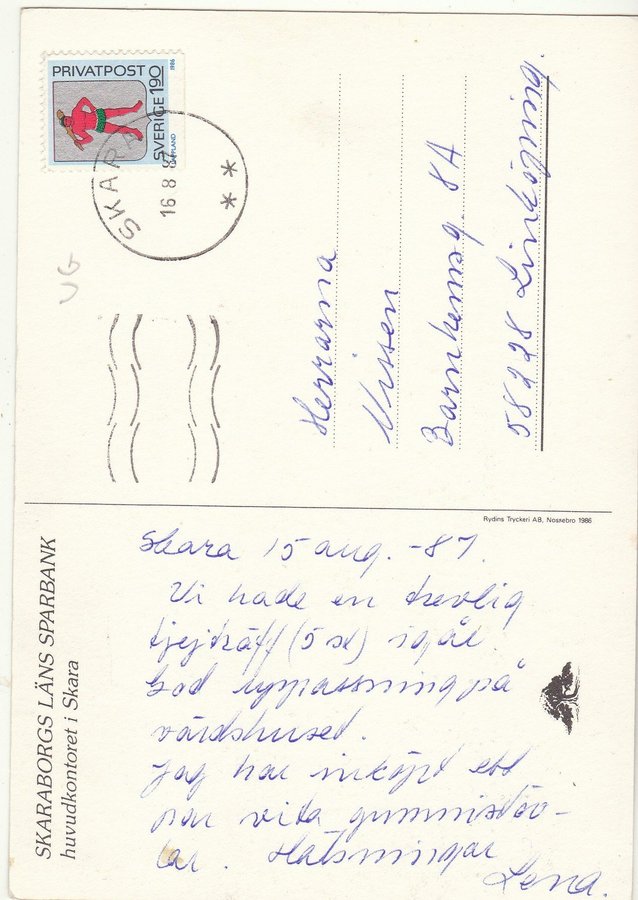 PRIVATPOST
1986
SVERIGE 190
LAPPLAND
SKARA
16 8 8
UG
Herrarna
Nissen
Barnhemsg. 8A
58228 Linköping.
Rydins Tryckeri AB, Nossebro 1986
SKARABORGS LÄNS SPARBANK
huvudkontoret i Skara
Skara 15 aug. -87.
Vi hade en trevlig
tjejträff (5 st) igår.
God uppassning på
värdshuset.
Jag har inköpt ett
par vita gummistöv-
lar. Hälsningar
Lena.